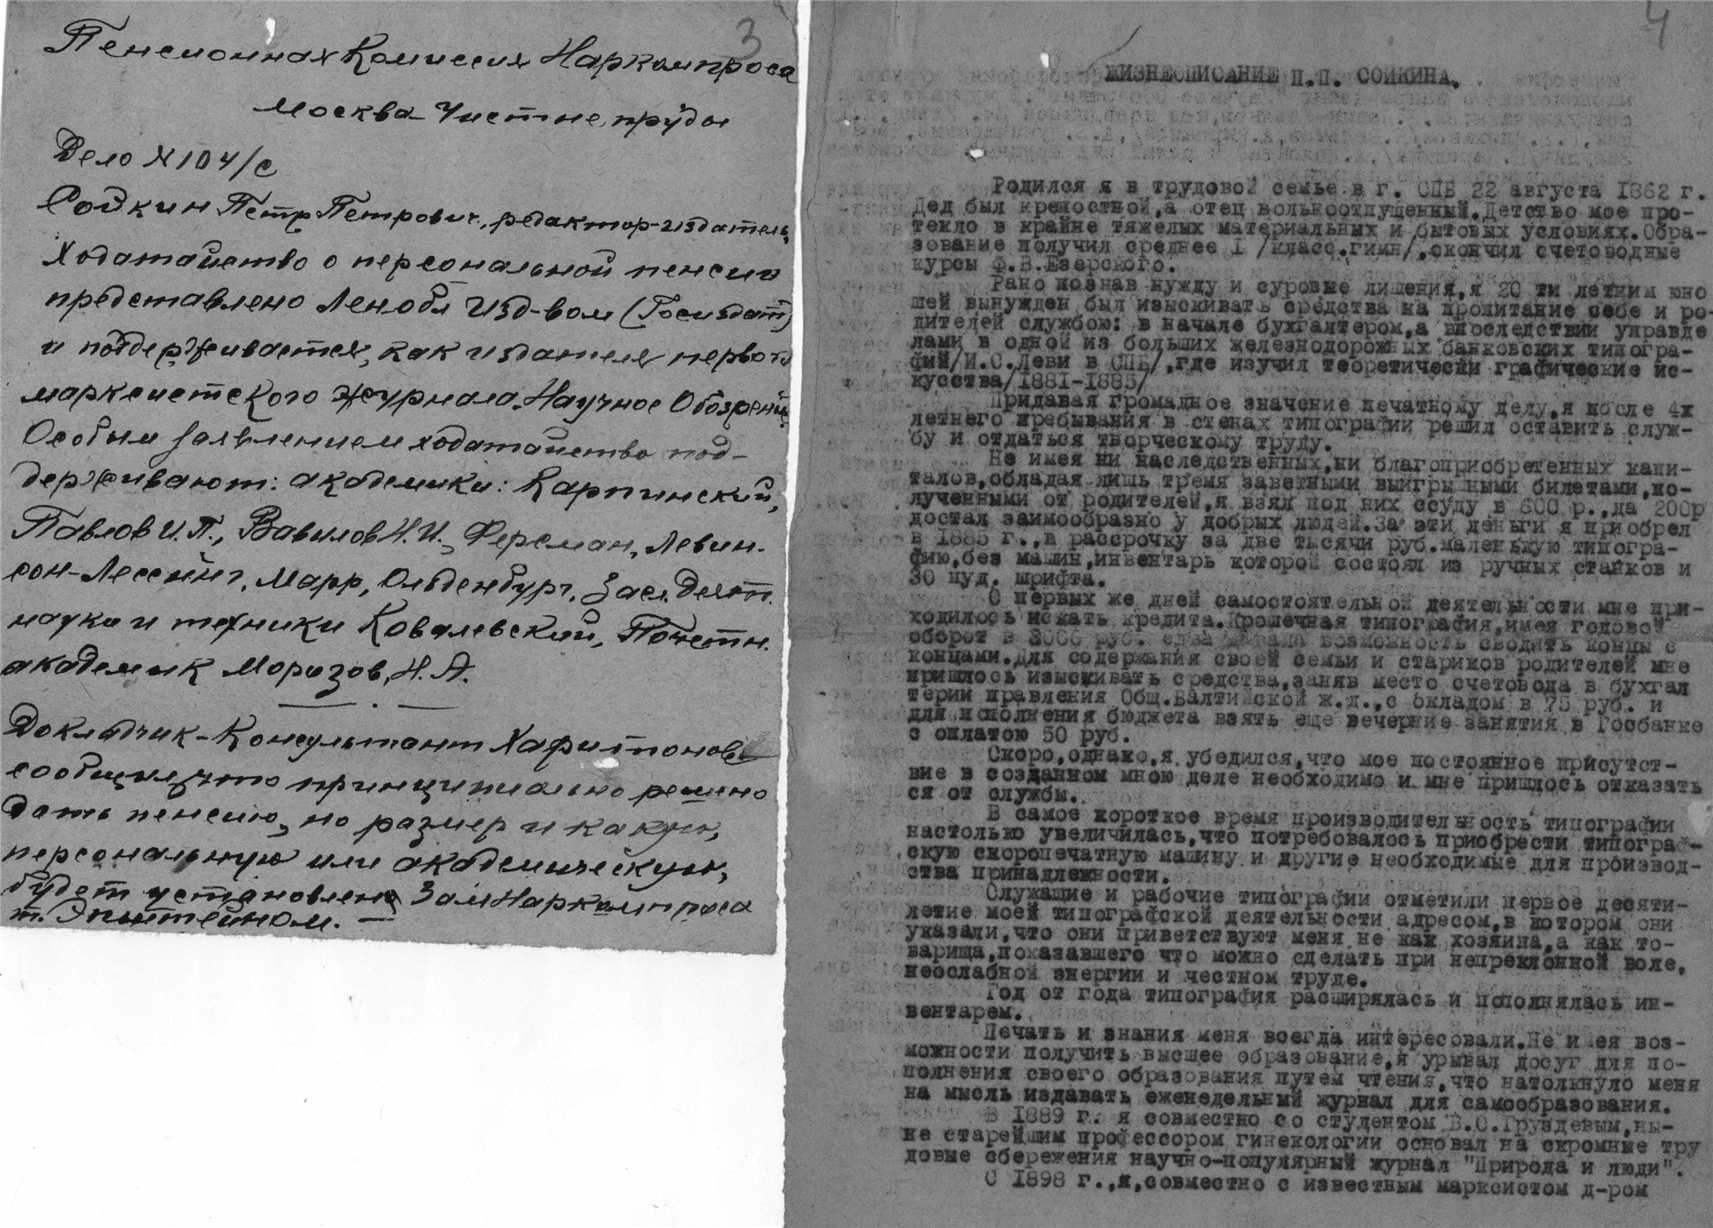 3
Пенсионная Комиссия Наркомпроса
Москва Чистые пруды
Дело N 104/с
Сойкин Петр Петрович, редактор-издатель,
Ходатайство о персональной пенсии
представлено Ленобл Изд-вом (Госиздат)
и поддерживается, как издателя первого
марксистского журнала "Научное Обозрение
Особым заявлением ходатайство под-
держивают: академики: Карпинский,
Павлов И.П., Вавилов Н.И., Ферсман, Левин-
сон-Лессинг, Марр, Ольденбург, Засл. Деят.
науки и техники Ковалевский, Почетн.
академик Морозов, Н.А.
Докладчик-Консультант Харитонов
сообщил, что принципиально решено
дать пенсию, но размер и какую,
персональную или академическую,
будет установлено ЗамНаркомпроса
т. Эпштейном. —
4
ЖИЗНЕОПИСАНИЕ П.П. СОЙКИНА.
Родился я в трудовой семье в г. СПБ 22 августа 1862 г.
Дед был крепостной,а отец вольноотпущенный.Детство мое про-
текло в крайне тяжелых материальных и бытовых условиях.Обра-
зование получил среднее 1 /класс.гимн/,скончил счетоводные
курсы Ф.В.Езерского.
Рано познав нужду и суровые лишения,я 20 ти летним юно
шей вынужден был изыскивать средства на пропитание себе и ро-
дителей службою: в начале бухгалтером,а впоследствии управде
лами в одной из больших железнодорожных банковских типогра-
фий/И.С.Леви в СПБ/,где изучил теоретически графические ис-
кусства/1881-1885/
Придавая громадное значение печатному делу,я после 4х
летнего пребывания в стенах типографии решил оставить служ-
бу и отдаться творческому труду.
Не имея ни наследственных,ни благоприобретенных капи-
талов,обладая лишь тремя заветными выигрышными билетами,по-
лученными от родителей,я взял под них ссуду в 600 р.,да 200р
достал заимообразно у добрых людей.За эти деньги я приобрел
в 1885 г.,в рассрочку за две тысячи руб.маленькую типогра-
фию,без машин,инвентарь которой состоял из ручных станков и
30 пуд. шрифта.
С первых же дней самостоятельной деятельности мне при-
ходилось искать кредита.Крошечная типография,имея годовой
оборот в 3000 руб. едва давала возможность сводить концы с
концами.Для содержания своей семьи и стариков родителей мне
пришлось изыскивать средства,заняв место счетовода в бухгал
терии правления Общ.Балтийской ж.д.,с окладом в 75 руб. и
для исполнения бюджета взять еще вечерние занятия в Госбанке
с оплатою 50 руб.
Скоро,однако,я убедился,что мое постоянное присутст-
вие в созданном мною деле необходимо и мне пришлось отказать
ся от службы.
В самое короткое время производительность типографии
настолько увеличилась,что потребовалось приобрести типограф-
скую скоропечатную машину и другие необходимые для производ-
ства принадлежности.
Служащие и рабочие типографии отметили первое десяти-
летие моей типографской деятельности адресом,в котором они
указали,что они приветствуют меня не как хозяина,а как то-
варища,показавшего что можно сделать при непреклонной воле,
неослабной энергии и честном труде.
Год от года типография расширялась и пополнялась ин-
вентарем.
Печать и знания меня всегда интересовали.Не имея воз-
можности получить высшее образование,я урывал досуг для по-
полнения своего образования путем чтения,что натолкнуло меня
на мысль издавать еженедельный журнал для самообразования.
В 1889 г. я совместно со студентом В.С.Груздевым,ны-
не старейшим профессором гинекологии основал на скромные тру
довые сбережения научно-популярный журнал "Природа и люди".
С 1898 г.,я,совместно с известным марксистом д-ром